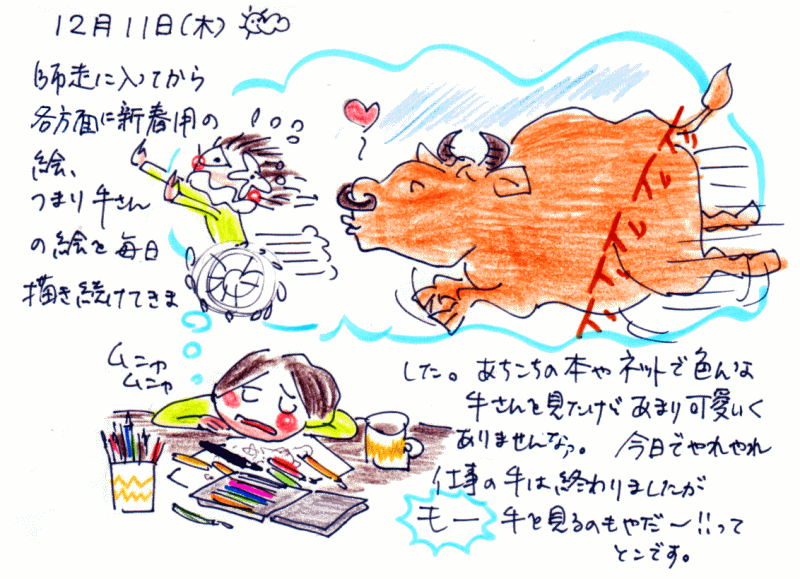 12月11日(木)
師走に入ってから
各方面に新春用の
絵、
つまり牛さん
の絵を毎日
描き続けてきま
した。あちこちの本やネットで色んな
牛さんを見たけど あまり可愛いく
ありませんなァ。今日でやれやれ
仕事の牛は終わりましたが
モー 牛を見るのもやだ〜!!って
とこです。
ムニャ
ムニャ